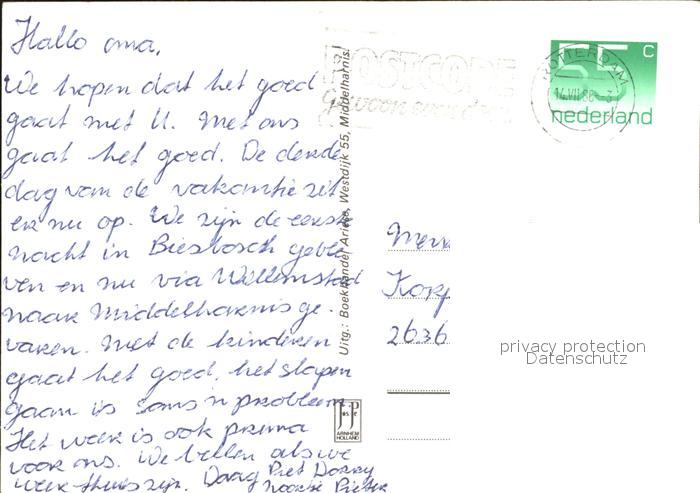 Hallo oma,
We hopen dat het goed
gaat met U. Met ons
gaat het goed. De derde
dag van de vakantie zit
er nu op. We zijn de eerste
nacht in Biesbosch geble
ven en nu via Willemstad
naar Middelharnis ge-
varen. Met de kinderen
gaat het goed, het slapen
gaan is soms 'n probleem.
Het weer is ook prima
voor ons. We bellen als we
weer thuis zijn. Daag Piet Dorry
Noortje Pieter
POSTCODE
Gewoon even
Uitg.: Boekhandel Ariese, Westdijk 55, Middelharnis.
ARNHEM
HOLLAND
ROTTERDAM
14.VII.88
55 c
nederland
Korp
2636
privacy protection
Datenschutz